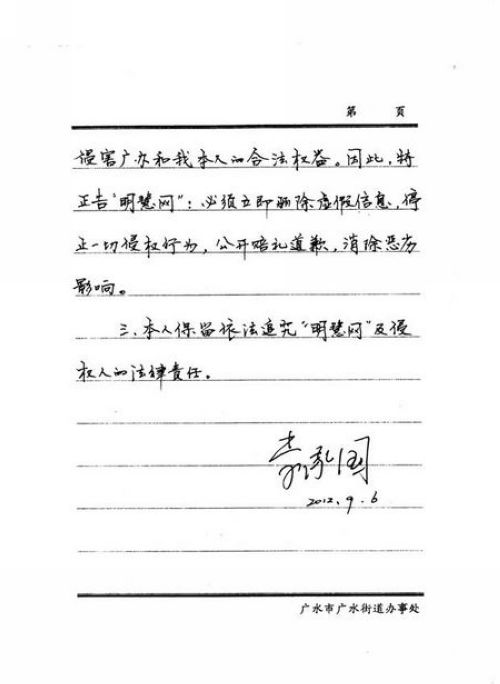 第 页
侵害广办和我本人的合法权益。因此,特
正告“明慧网”:必须立即删除虚假信息,停
止一切侵权行为,公开赔礼道歉,消除恶劣
影响。
三、本人保留依法追究“明慧网”及侵
权人的法律责任。
国
2012.9.6
广水市广水街道办事处